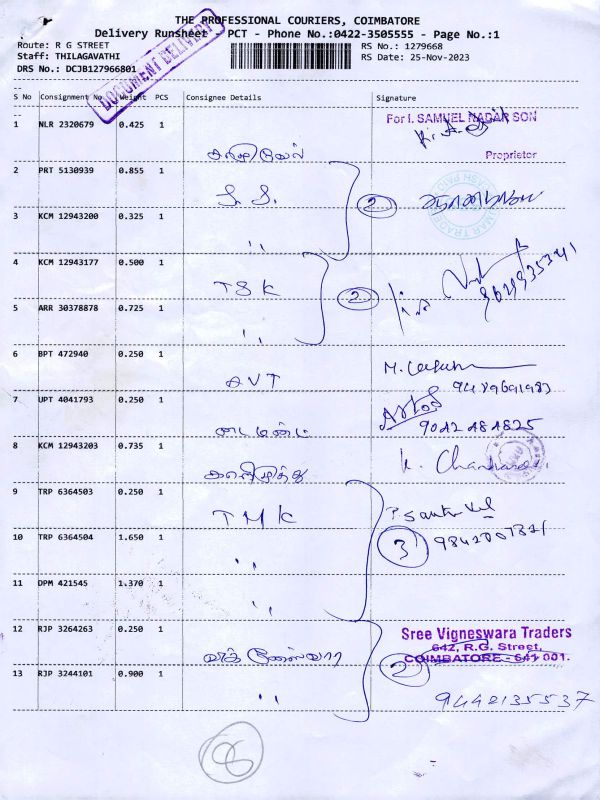 THE PROFESSIONAL COURIERS, COIMBATORE
Delivery Runsheet PCT - Phone No.:0422-3505555 - Page No.:1
Route: R G STREET
RS No.: 1279668
Staff: THILAGAVATHI
RS Date: 25-Nov-2023
DRS No.: DCJB127966801
DOCUMENT DELIVERY
S No Consignment No Weight PCS Consignee Details Signature
For I. SAMUEL NADAR SON
1 NLR 2320679 0.425 1
Proprietor
2 PRT 5130939 0.855 1
2
3 KCM 12943200 0.325 1
"
4 KCM 12943177 0.500 1
TSK
2
5 ARR 30378878 0.725 1
"
6 BPT 472940 0.250 1
AVT
M.
7 UPT 4041793 0.250 1
9042484825
8 KCM 12943203 0.735 1
K.
9 TRP 6364503 0.250 1
TMK
10 TRP 6364504 1.650 1
"
3
11 DPM 421545 1.370 1
"
12 RJP 3264263 0.250 1
Sree Vigneswara Traders
642, R.G. Street,
COIMBATORE - 641 001.
2
13 RJP 3244101 0.900 1
"
9442135537